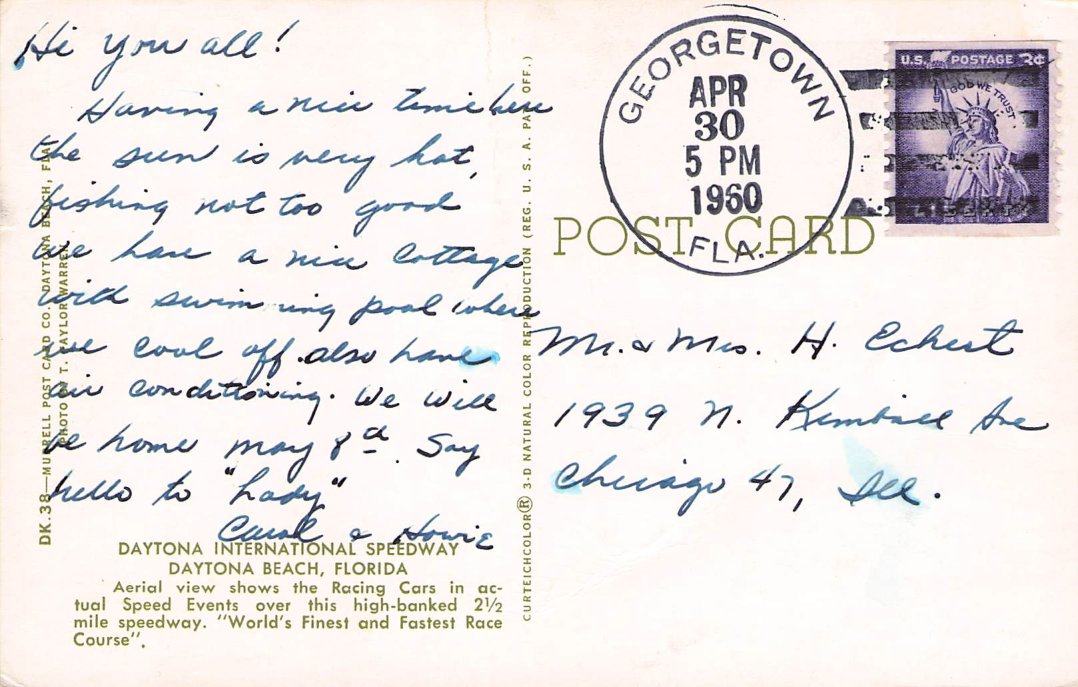 Hi you all!
Having a nice time here
the sun is very hot,
fishing not too good
we have a nice Cottage
with swimming pool where
we cool off. also have
air conditioning. We will
be home may 8th. Say
hello to "Lady"
Carol & Howie
DAYTONA INTERNATIONAL SPEEDWAY
DAYTONA BEACH, FLORIDA
Aerial view shows the Racing Cars in ac-
tual Speed Events over this high-banked 2½
mile speedway. "World's Finest and Fastest Race
Course".
DK.38—MURRELL POST CARD CO., DAYTONA BEACH, FLA.
PHOTO BY T. TAYLOR WARREN
CURTEICHCOLOR® 3-D NATURAL COLOR REPRODUCTION (REG. U. S. A. PAT. OFF.)
GEORGETOWN
APR
30
5 PM
1960
FLA.
U.S. POSTAGE 3¢
IN GOD WE TRUST
LIBERTY
POST CARD
Mr. & Mrs. H. Echert
1939 N. Kimball Ave
Chicago 47, Ill.